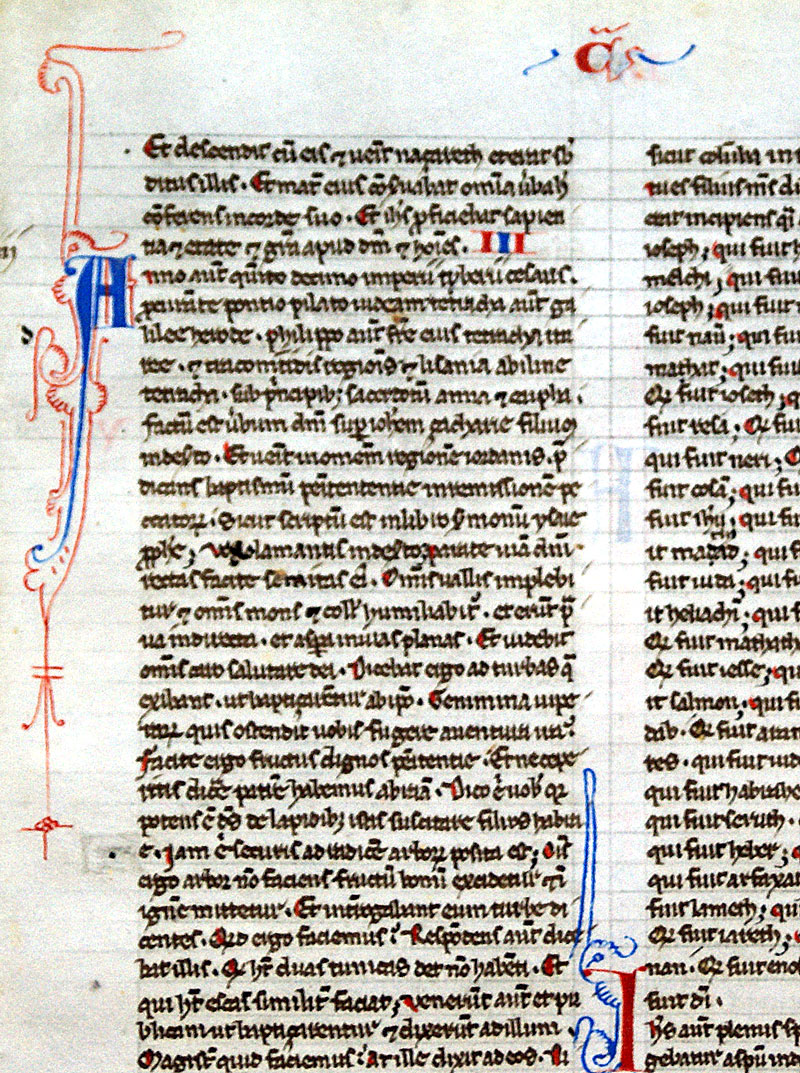 CA
Et descendit cū eis ⁊ uenit naçareth et erat sb
ditus illis. Et mat̄ eius cōseruabat omīa ūba h̄
cōferens in corde suo. Et ih̄s ꝓficiebat sapien
tia ⁊ etate ⁊ gr̄a apud dm̄ ⁊ hoīes. III
Anno aut̄ quīto decimo imperii tyberii cesaris.
ꝓcurāte pontio pilato iudeam tetracha aut̄ ga
lilee herode. philippo aut̄ fr̄e eius tetracha itu
ree. ⁊ traconitidis regiōis ⁊ lisania abiline
tetracha. sub pͥncipib; sacerdotū anna ⁊ caypha.
factū est ūbum dn̄i sup iohem̄ çacharie filium
in deserto. Et uenit in omem̄ regionē iordanis. p̄
dicans baptismū penitentie in remissionē pe
ccatoꝝ. Sicut scriptū est in libro s̄monū ysaie
ꝓphe; uox clamantis in deserto parate uiā dn̄i
rectas facite semitas ei. Omīs uallis implebi
tur ⁊ omīs mons ⁊ coll' humiliabit̄. et erūt p̄
ua in directa. et aspa in uias planas. Et uidebit
omīs caro salutare dei. Dicebat ergo ad turbas q̄
exibant. ut baptiçarentur ab ipo. Gemmina uipe
raꝝ quis ostendit uobis fugere a uentura ira?
facite ergo fructus dignos penitentie. Et ne cepe
ritis dicē patrē habemus abraā. Dico ē uob' qꝛ
potens ē ds̄ de lapidibꝫ istis suscitare filios habra
e. Iam ē securis ad radicē arboꝝ posita est; Oīs
ergo arbor nō faciens fructū bonū excidetur ⁊ ī
ignē mittetur. Et int̄rogabant eum turbe di
centes. Qd ergo faciemus? Respōdens aut̄ dice
bat illis. Q̄ ht̄ duas tunicas det nō habēti. Et
qui ht̄ escas similit̄ faciat; uenerūt aut̄ et pu
blicani ut baptiçarentur ⁊ dixerūt ad illum
Magist̄ quid faciemus? at ille dixit ad eos. Ni
sicut coluba in
tu es filius m̄s di
erat incipiens q̄i
ioseph; qui fuit h
melchi; qui fuit
ioseph; qui fuit
fuit naū; qui fui
mathat; qui fuit
Q̄ fuit ioseth; q
fuit resa. Q̄ fuit
qui fuit neri; Q
fuit cosā; qui fu
fuit ihū; qui fui
it madad; qui f
fuit iuda; qui fui
it heliachī; qui f
Q̄ fuit mathath
Q̄ fuit iesse; qu
it salmon; qui f
dab. Q̄ fuit aram
tes. qui fuit iud
qui fuit habrahe
qui fuit seruth.
qui fuit heber; q
qui fuit arfaxa
fuit lamech; qu
Q̄ fuit iareth;
nan. Q̄ fuit eno
fuit di.
Ih̄s aut̄ plenus sp
gebatur a spū in d